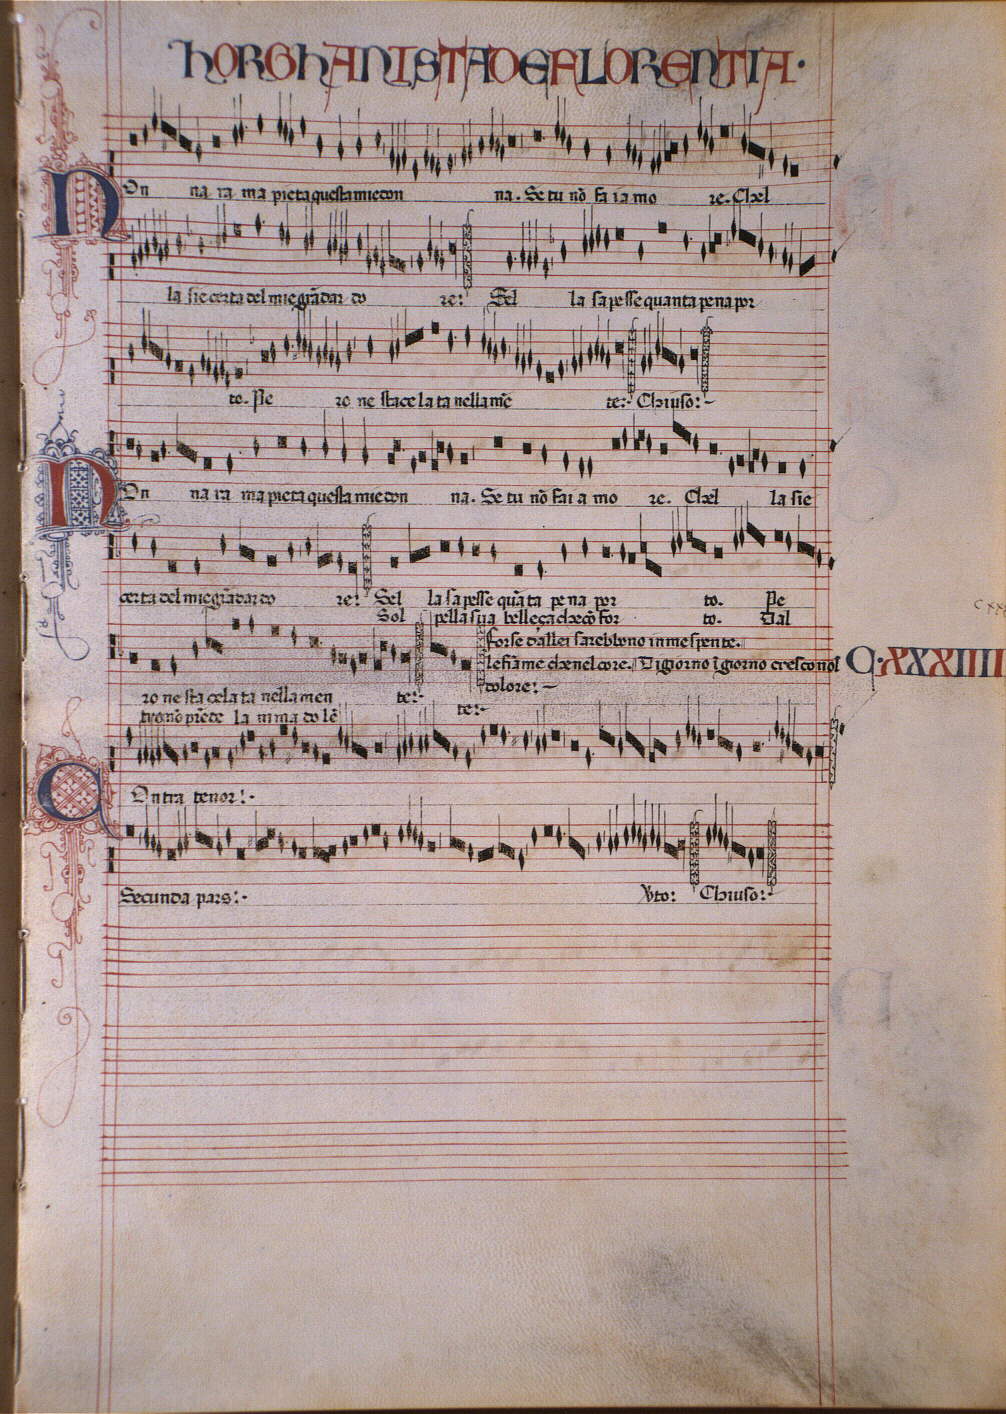 hORGhANISTA DE FLORENTIA·
On na ra ma pieta questa mie don na. Se tu nõ fa i a mo re. Chel
la sie certa del mie grãd ar do re: Sel la sapesse quanta pena por
to. Pe ro ne sta ce la ta nella mẽ te: Chiuso:
On na ra ma pieta questa mie don na. Se tu nõ fai a mo re. Chel la sie
certa del mie grãd ar do re: Sel la sapesse quãta pe na por to. Pe
Sol pella sua belleça che cõ for to. Dal
forse d'allei sarebbono in me spente.
le fiãme che nel core. Di giorno ĩ giorno cresco nol
dolore:
C·XXXIIII
ro ne sta cela ta nella men te:
la nima do lẽ te:
Ontra tenor:·
Secunda pars:· Chiuso: